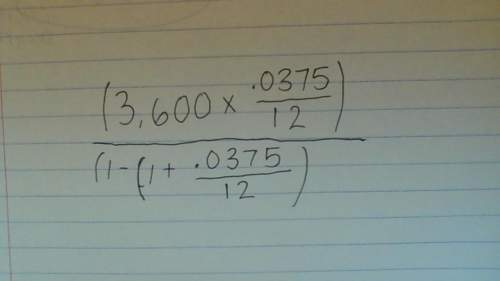 (3,600 × .0375/12)
(1-(1+ .0375/12)